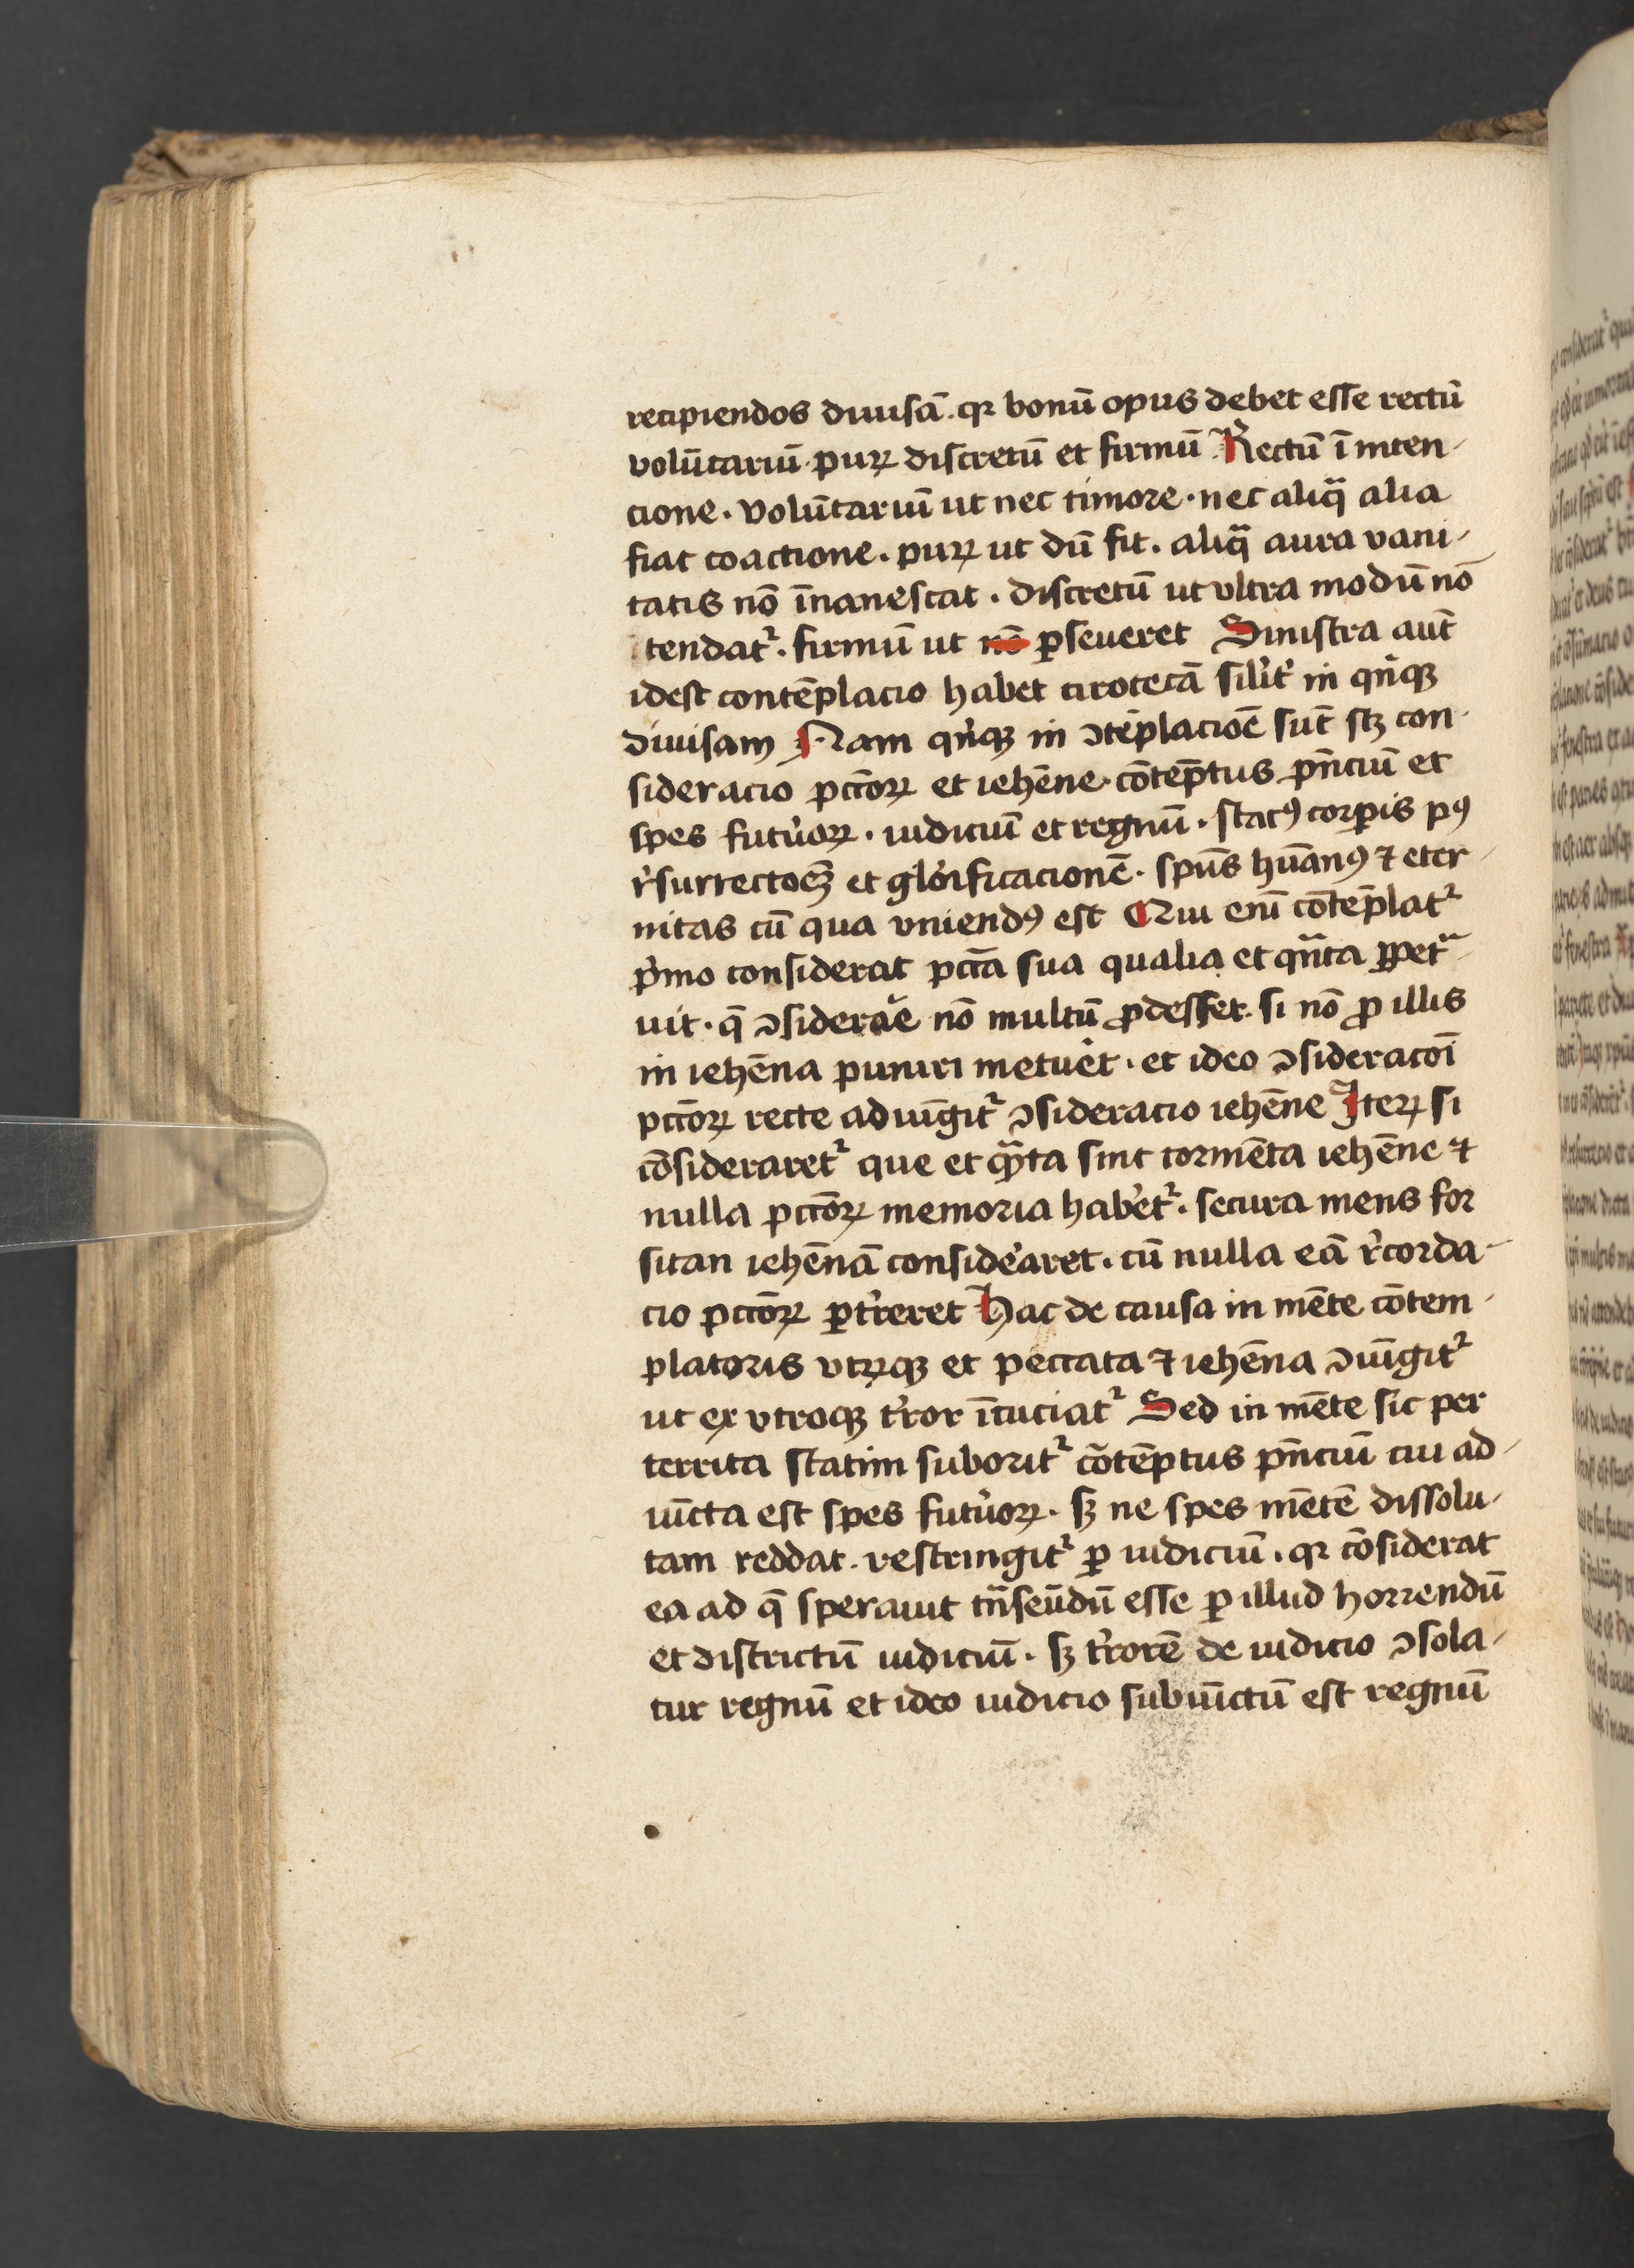 recipiendos diuisā. qꝛ bonū opus debet esse rectū
volūtariū. puꝝ discretū et firmū Rectū ī inten-
cione. Volūtariū ut nec timore. nec aliq̄ alia
fiat coactione. puꝝ ut dū fit. aliq̄ aura vani-
tatis nō īnanescat. discretū ut vltra modū nō
tendatᷣ. firmū ut nō ꝑseueret Sinistra aut̄
idest contēplacio habet cirotecā sil'r in qn̄qꝫ
diuisam Nam qn̄qꝫ in ꝯtēplacioē sūt sꝫ con-
sideracio pcc̄oꝝ et iehēne. cōtēptus pn̄ciū et
spes futuoꝝ. iudiciū et regnū. statꝰ corꝑis pꝰ
r̓surrectoeꝫ et glorificacionē. spūs hūanꝰ ⁊ eter-
nitas cū qua vniendꝰ est Qui enī cōtēplatᷣ
p̓mo considerat pcc̄a sua qualia et qn̄ta ꝑpet̓-
uit. q̄ ꝯsiderae nō multū ꝓdesset. si nō ꝓ illis
in iehēna puniri metuet. et ideo ꝯsideracoī
pcc̄oꝝ recte adiūgitᷣ ꝯsideracio iehēne Iteꝝ si
cōsideraretᷣ que et qn̄ta sint tormēta iehēne ⁊
nulla pcc̄oꝝ memoria habetᷣ. secura mens for
sitan iehēnā consideāret. cū nulla eā r̓corda-
cio pcc̄oꝝ ꝑt̓reret Hac de causa in mēte cōtem-
platoris vtꝝqꝫ et peccata ⁊ iehēna ꝯiūgitᷣ
ut ex vtroqꝫ t̓ror īcuciatᷣ Sed in mēte sic per
territa statim suboritᷣ cōtēptus pn̄ciū cui ad-
iūcta est spes futuoꝝ. sꝫ ne spes mētē dissolu-
tam reddat. restringitᷣ ꝑ iudiciū. qꝛ cōsiderat
ea ad q̄ sperauit tn̄seūdū esse ꝑ illud horrendū
et districtū iudiciū. sꝫ t̓rorē de iudicio ꝯsola-
tur regnū et ideo iudicio subiūctū est regnū